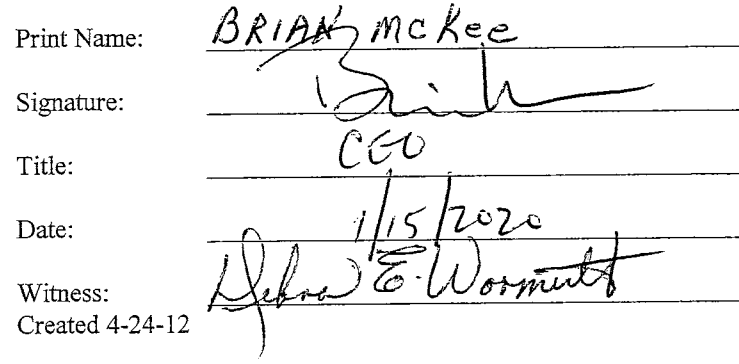 Print Name: BRIAN McKee
Signature:
Title: CEO
Date: 1/15/2020
Witness: Debra E. Wormuth
Created 4-24-12